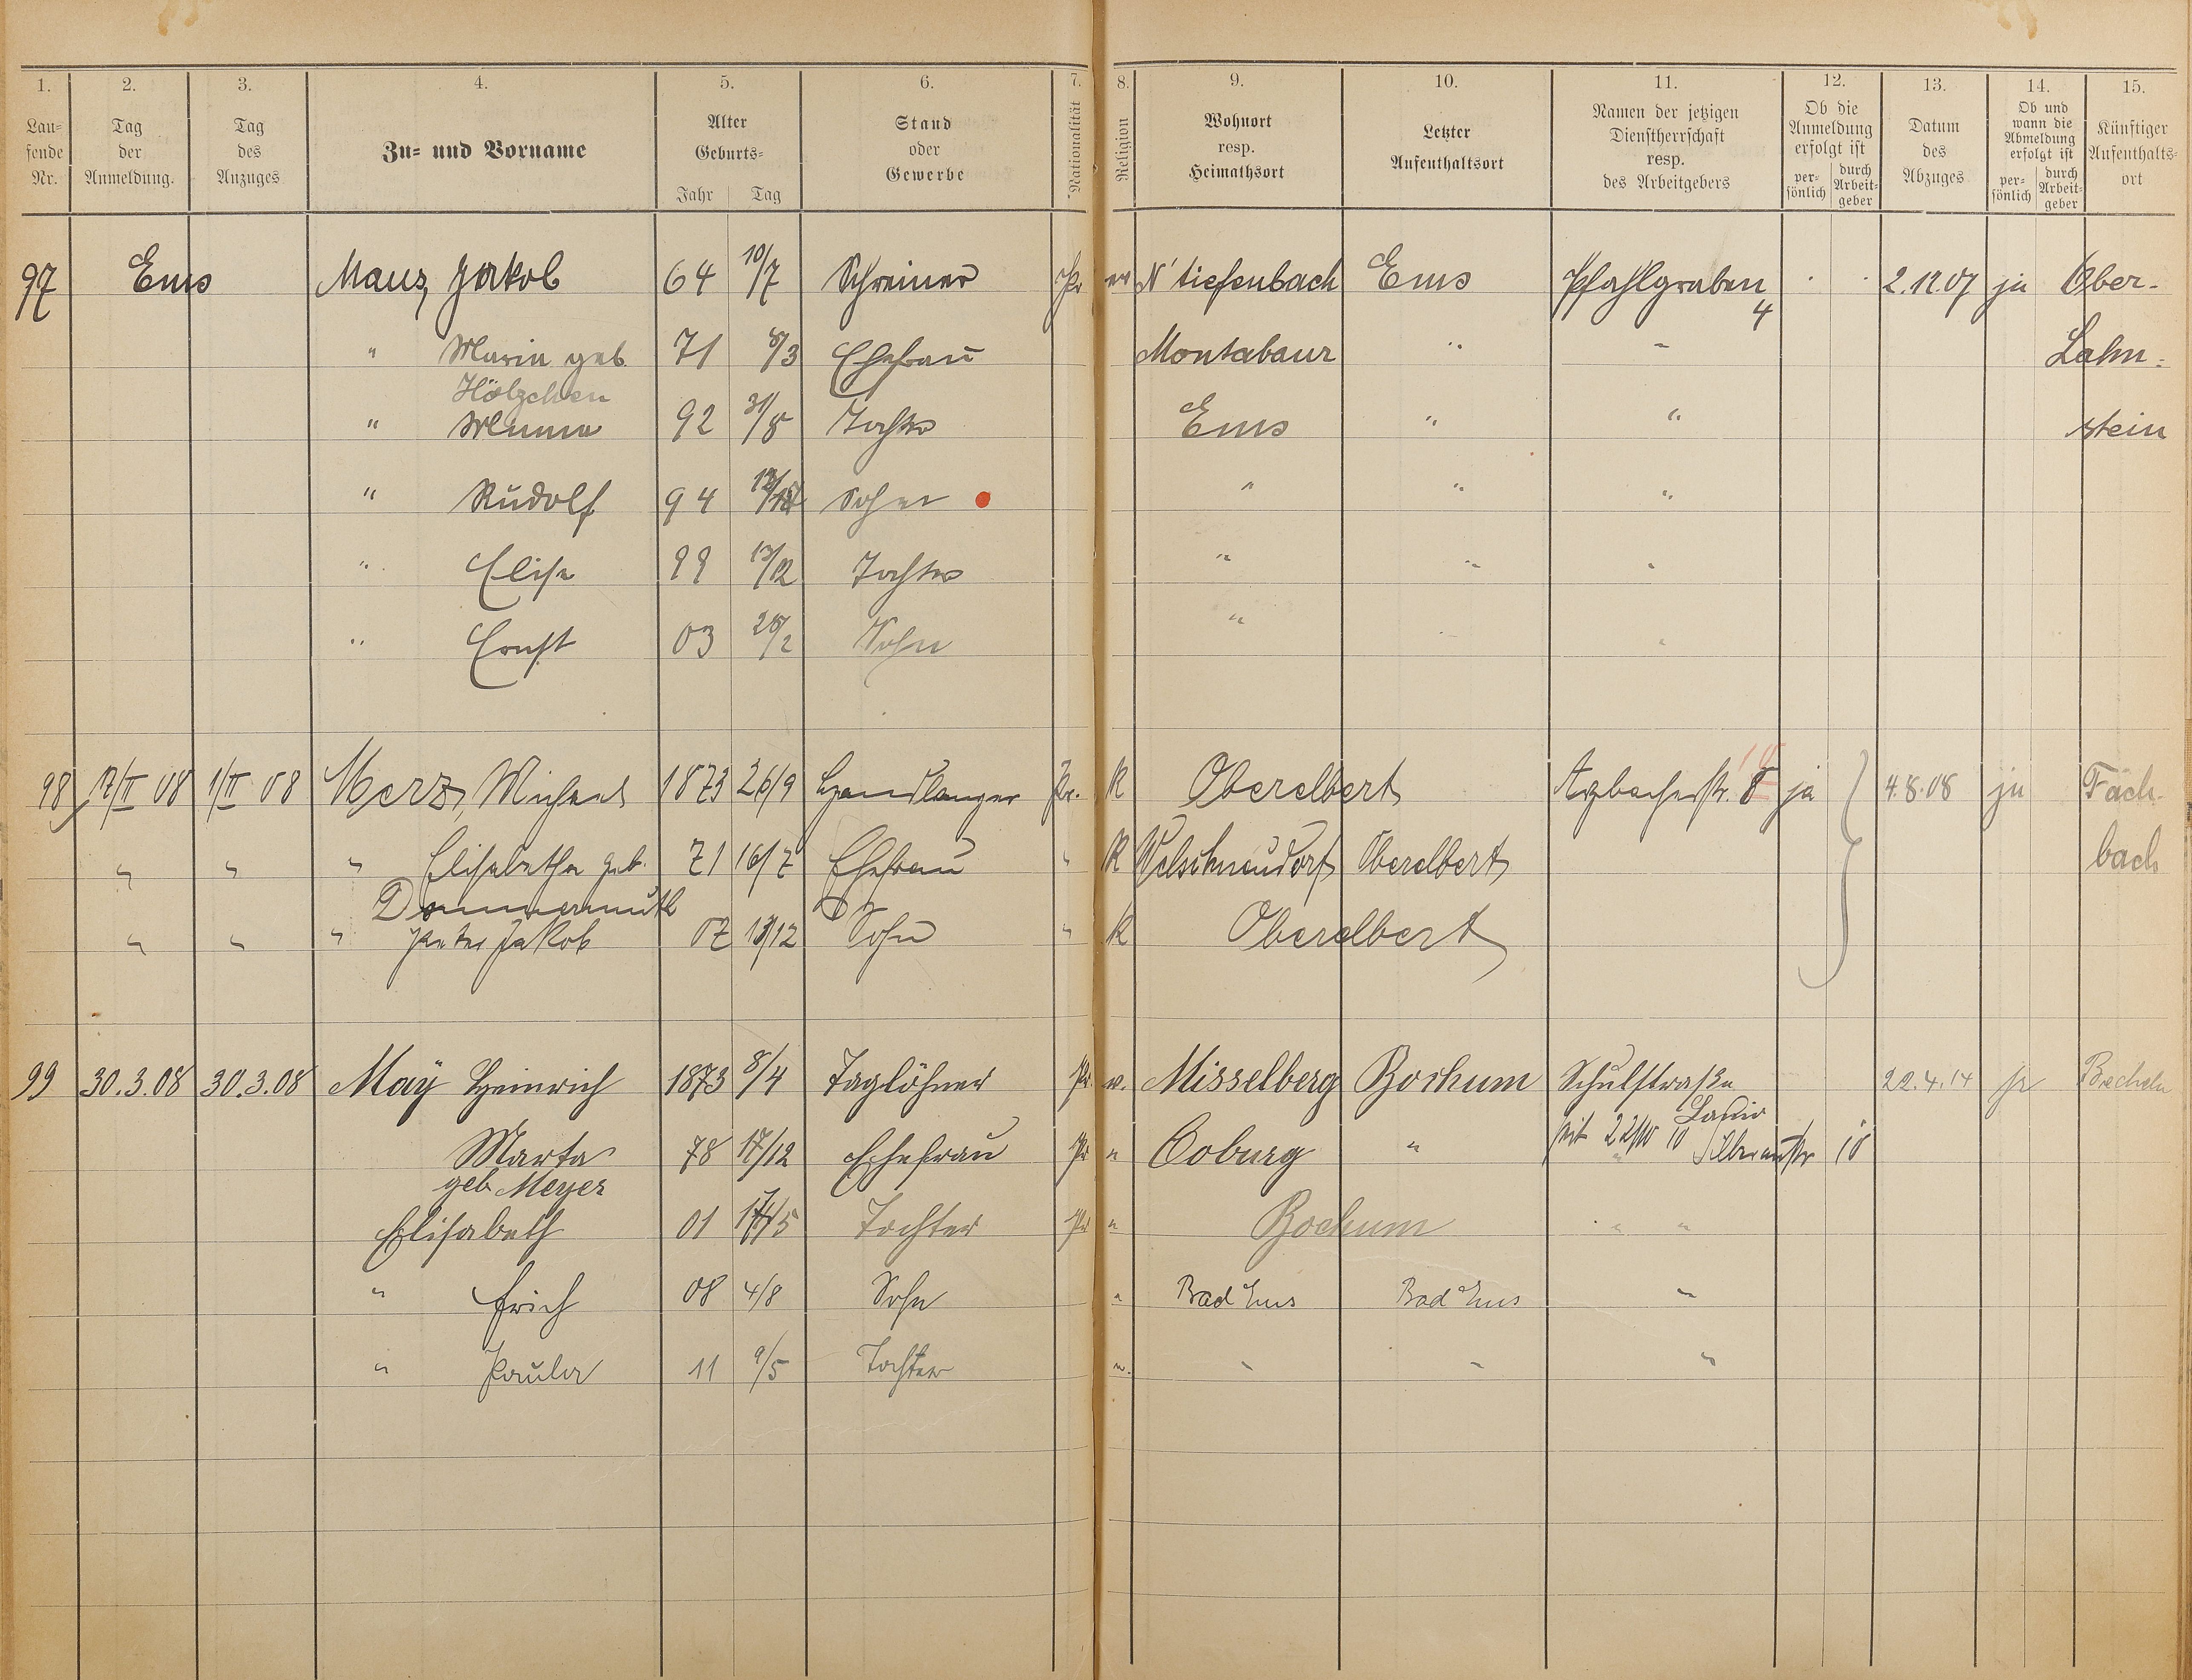 1. 2. 3. 4. 5. 6. 7. 8. 9. 10. 11. 12. 13. 14. 15.
Lau=
fende
Nr.
Tag
der
Anmeldung.
Tag
des
Anzuges
Zu= und Vorname
Alter
Geburts=
Jahr Tag
Stand
oder
Gewerbe
Nationalität
Religion
Wohnort
resp.
Heimathsort
Letzter
Aufenthaltsort
Namen der jetzigen
Dienstherrschaft
resp.
des Arbeitgebers
Ob die
Anmeldung
erfolgt ist
per=
sönlich
durch
Arbeit=
geber
Datum
des
Abzuges
Ob und
wann die
Abmeldung
erfolgt ist
per=
sönlich
durch
Arbeit=
geber
Künftiger
Aufenthalts=
ort
97 Ems Maus, Jakob 64 10/7 Schreiner Pr ev N'tiefenbach Ems Pfahlgraben 4 2.12.07 ja Ober-
" Maria geb. 71 8/3 Ehefrau Montabaur " - Lahn-
Hölzchen
" 92 31/8 Tochter Ems " " stein
" Rudolf 94 Sohn " " "
" Elise 99 13/12 Tochter " " "
" Ernst 03 28/2 Sohn "
98 12/II 08 1/II 08 Merz, Michael 1873 26/9 Handlanger Pr. k Oberelbert Arzbacherstr. 8 ja 4.8.08 ja Fach-
" " " Elisabetha geb. 71 16/7 Ehefrau " k Welschneudorf Oberelbert bach
Dommermuth
" " " Peter Jakob 07 13/12 Sohn " k Oberelbert
99 30.3.08 30.3.08 May Heinrich 1873 8/4 Taglöhner Pr. ev. Misselberg Bochum Schulstraße 22.4.14 ja Becheln
Marta 78 17/12 Ehefrau Pr " Coburg " seit 22/10 10
geb. Meyer
Elisabeth 01 Tochter Pr " Bochum " "
" Erich 08 4/8 Sohn " Bad Ems Bad Ems "
" Paula 11 9/5 Tochter " " " "